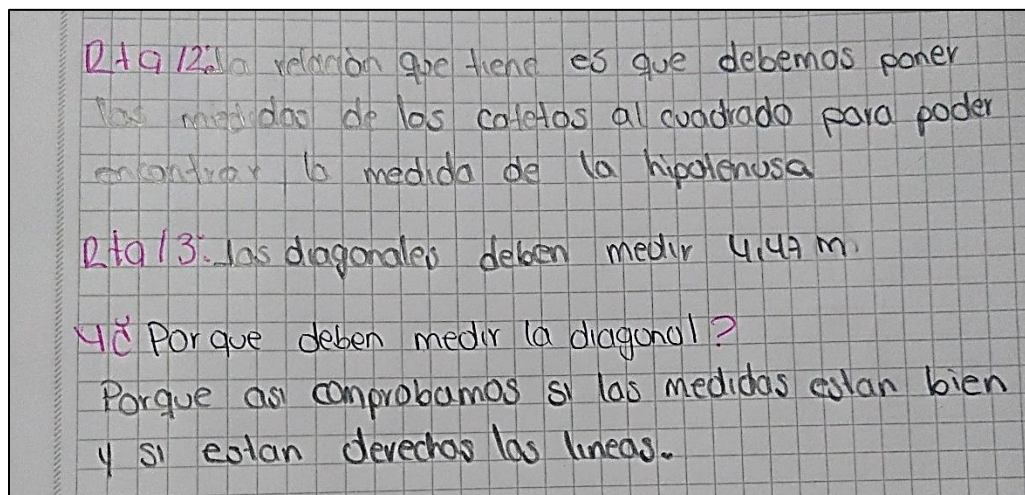 Rta 12: la relación que tiene es que debemos poner
las medidas de los catetos al cuadrado para poder
encontrar la medida de la hipotenusa
Rta 13: las diagonales deben medir 4,47 m.
4 ¿ Por que deben medir la diagonal?
Porque asi comprobamos si las medidas estan bien
y si estan derechas las lineas.